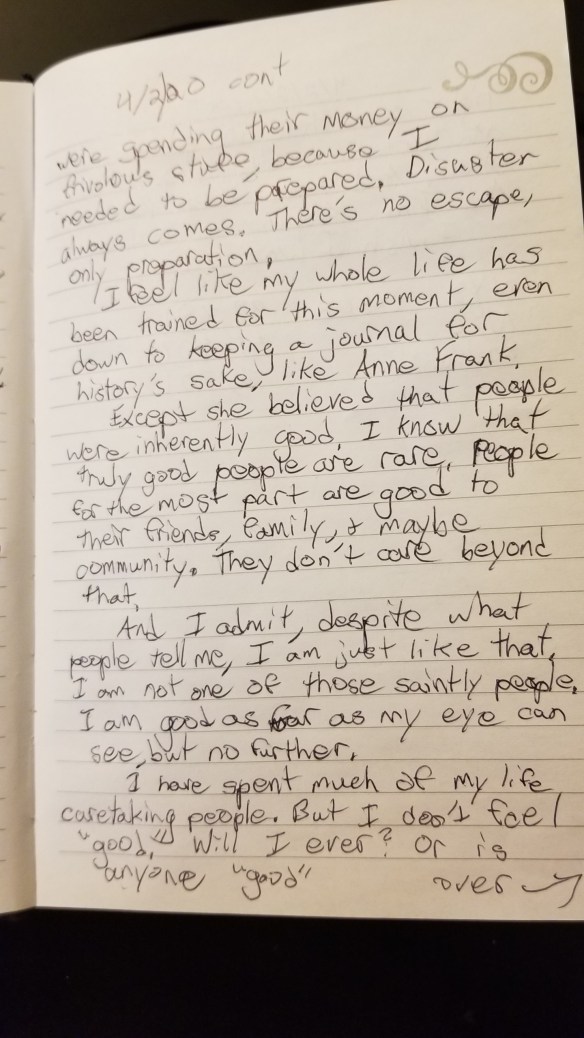 4/2/20 cont
were spending their money on
frivolous stuff, because I
needed to be prepared. Disaster
always comes. There's no escape,
only preparation.
I feel like my whole life has
been trained for this moment, even
down to keeping a journal for
history's sake, like Anne Frank.
Except she believed that people
were inherently good. I know that
truly good people are rare. People
for the most part are good to
their friends, family, & maybe
community. They don't care beyond
that.
And I admit, despite what
people tell me, I am just like that.
I am not one of those saintly people.
I am good as far as my eye can
see, but no further.
I have spent much of my life
caretaking people. But I don't feel
"good." Will I ever? Or is
anyone "good"
over →